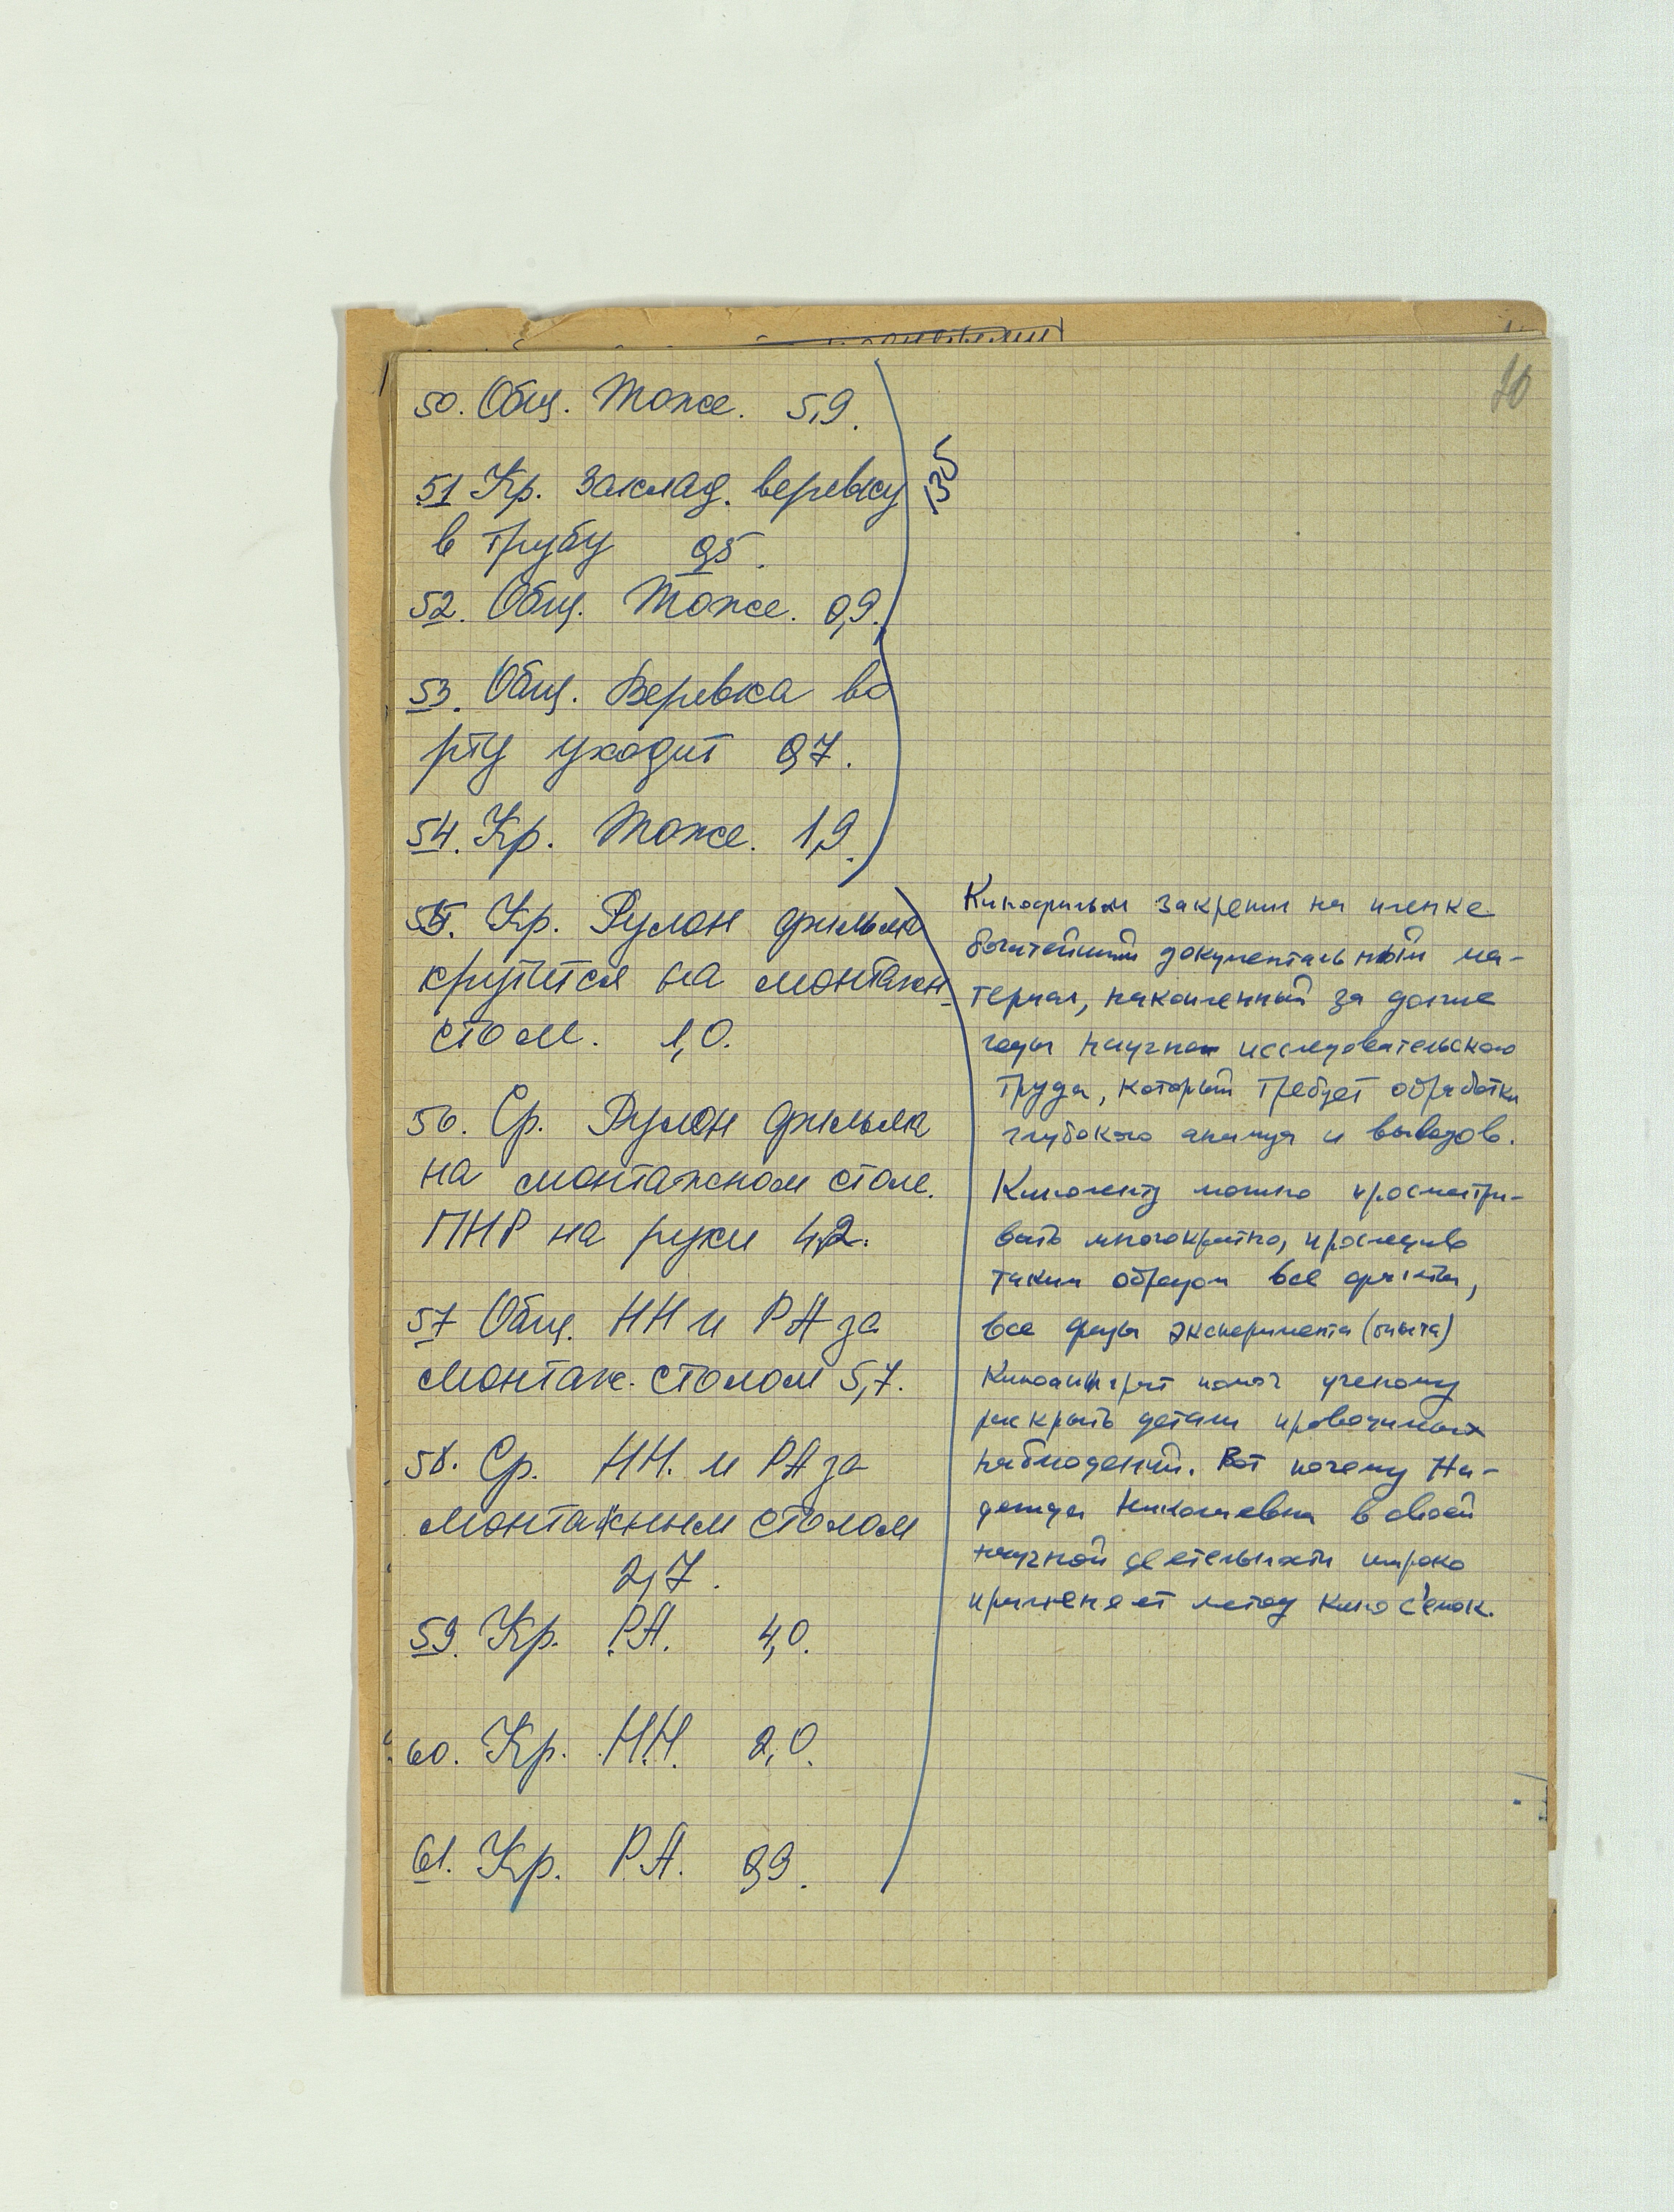 10
50. Общ. Тоже. 5,9.
135
51 Кр. Заклад. веревку
в трубу 0,5.
52. Общ. Тоже. 0,9.
53. Общ. Веревка во
рту уходит 0,7.
54. Кр. Тоже. 1,9.
55. Кр. Рулон фильма
крутится на монтажн.
столе. 1,0.
56. Ср. Рулон фильма
на монтажном столе.
ПНР на руки 4,2.
57 Общ. НН и РА за
монтаж. столом 5,7.
58. Ср. НН. и РА за
монтажным столом
2,7.
59. Кр. РА. 4,0.
60. Кр. Н.Н. 2,0.
61. Кр. Р.А. 0,9.
Кинофильм закрепил на пленке
богатейший документальный ма-
териал, накопленный за долгие
годы научно исследовательского
труда, который требует обработки
глубокого анализа и выводов.
Киноленту можно просматри-
вать многократно, проследив
таким образом все факты,
все фазы эксперимента (опыта)
Киноаппарат помог ученому
раскрыть детали проводимых
наблюдений. Вот почему На-
дежда Николаевна в своей
научной деятельности широко
применяет метод кино с'емок.